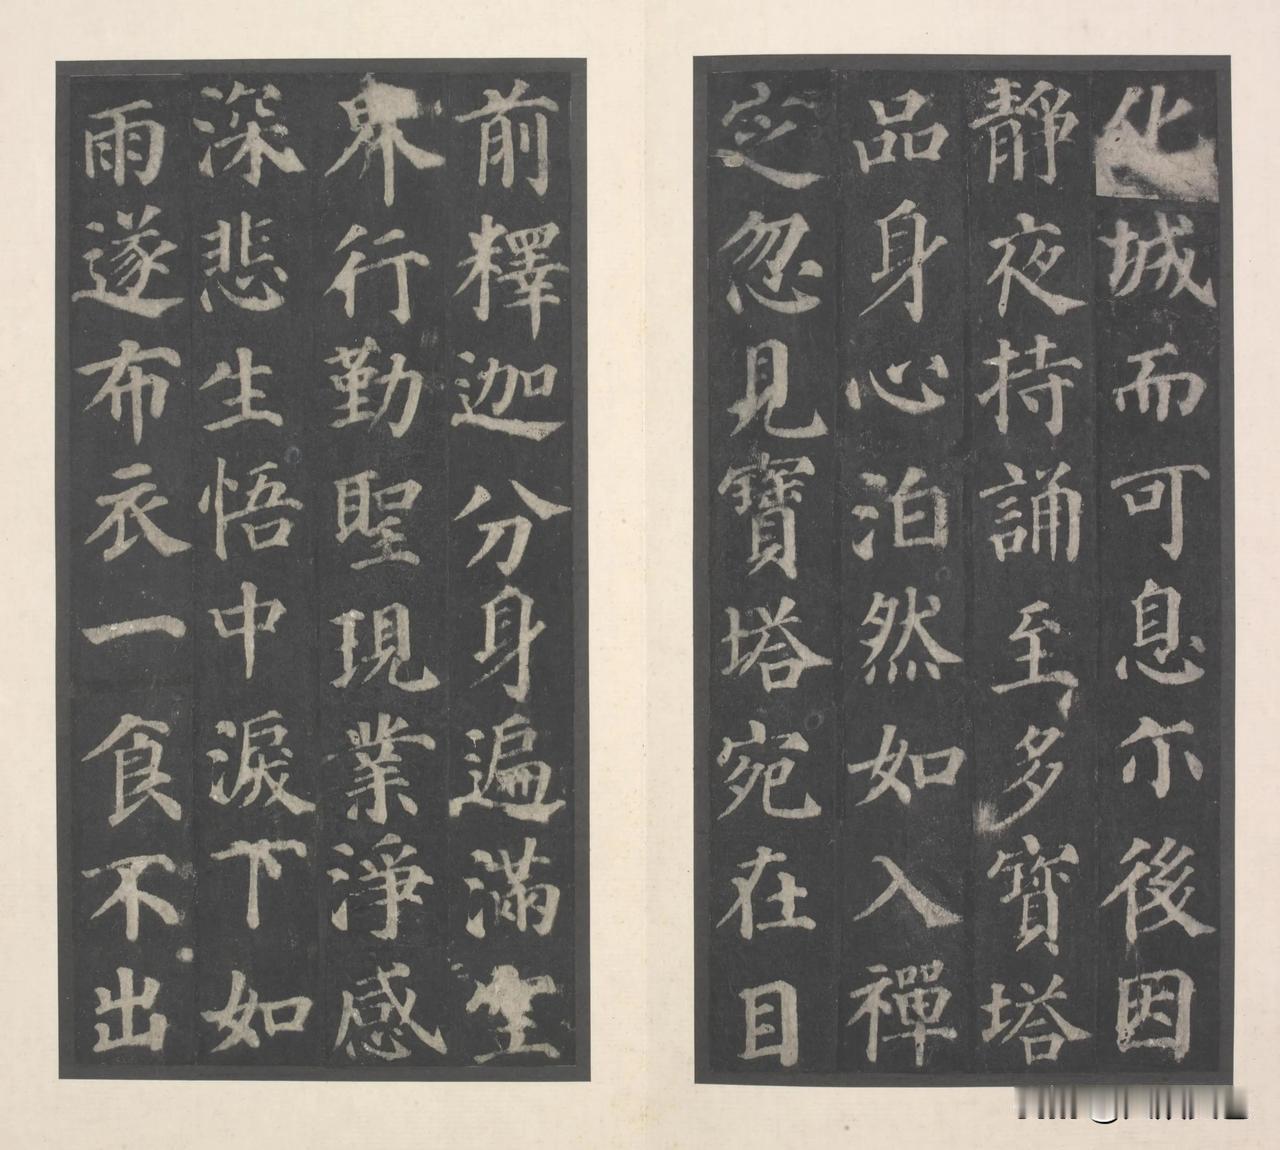 化城而可息尓後因
靜夜持誦至多寶塔
品身心泊然如入禪
定忽見寶塔宛在目
前釋迦分身遍滿空
界行勤聖現業淨感
深悲生悟中淚下如
雨遂布衣一食不出